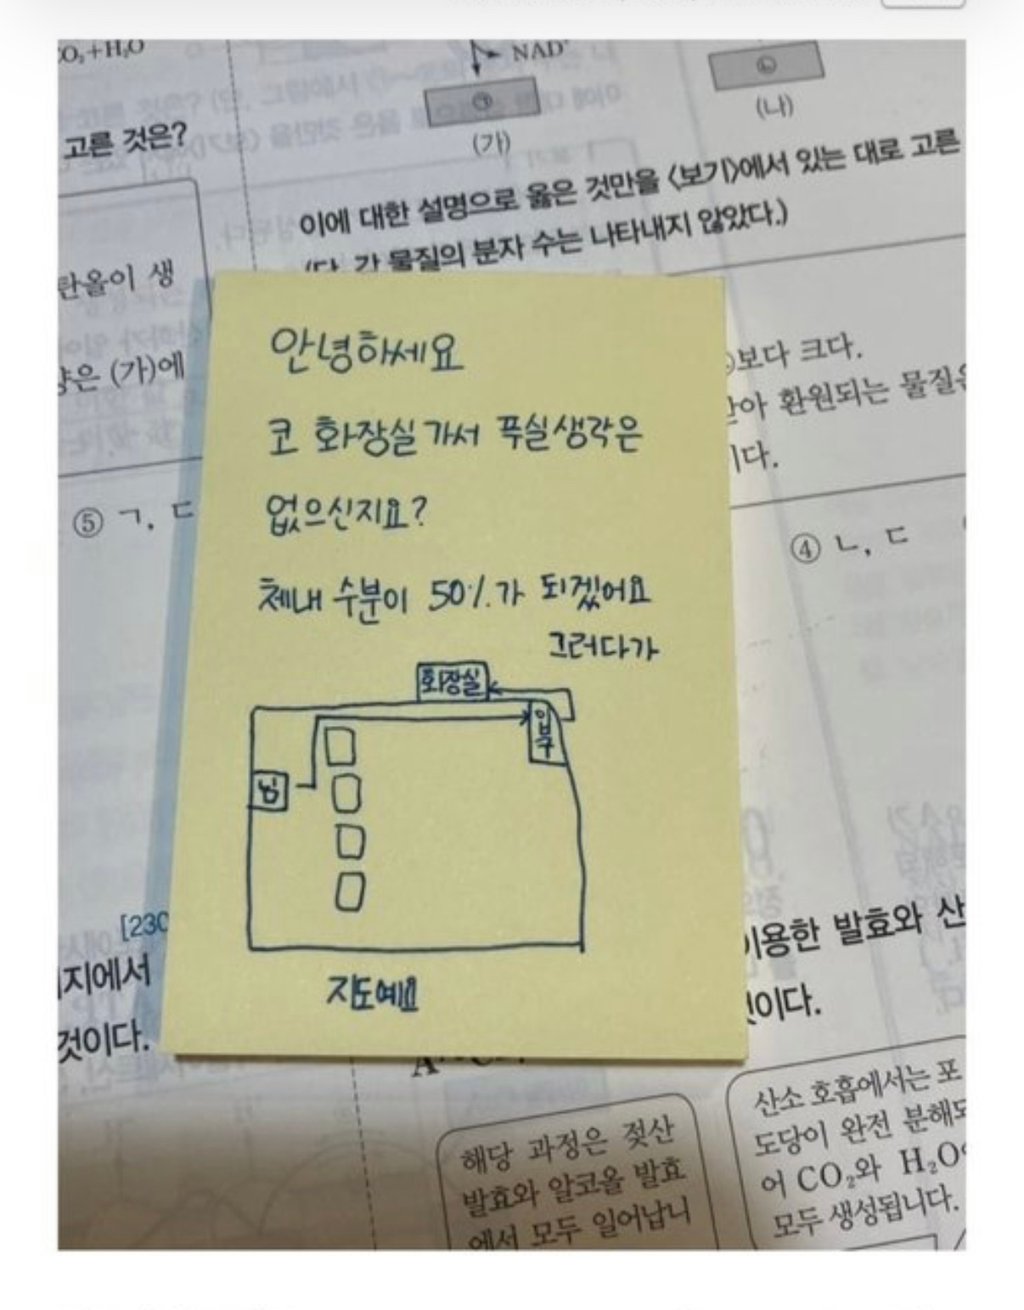 CO₂+H₂O
고른 것은?
탄올이 생
은 (가)에
⑤ ㄱ, ㄷ
[230
지에서
것이다.
NAD⁺
㉠
(가)
㉡
(나)
이에 대한 설명으로 옳은 것만을 <보기>에서 있는 대로 고른
(단, 각 물질의 분자 수는 나타내지 않았다.)
보다 크다.
아 환원되는 물질은
이다.
④ ㄴ, ㄷ
안녕하세요
코 화장실가서 푹실생각은
없으신지요?
체내 수분이 50%가 되겠어요
그러다가
화장실
입구
님
지도예요
이용한 발효와 산
것이다.
해당 과정은 젖산
발효와 알코올 발효
에서 모두 일어납니
산소 호흡에서는 포
도당이 완전 분해되
어 CO₂와 H₂O
모두 생성됩니다.